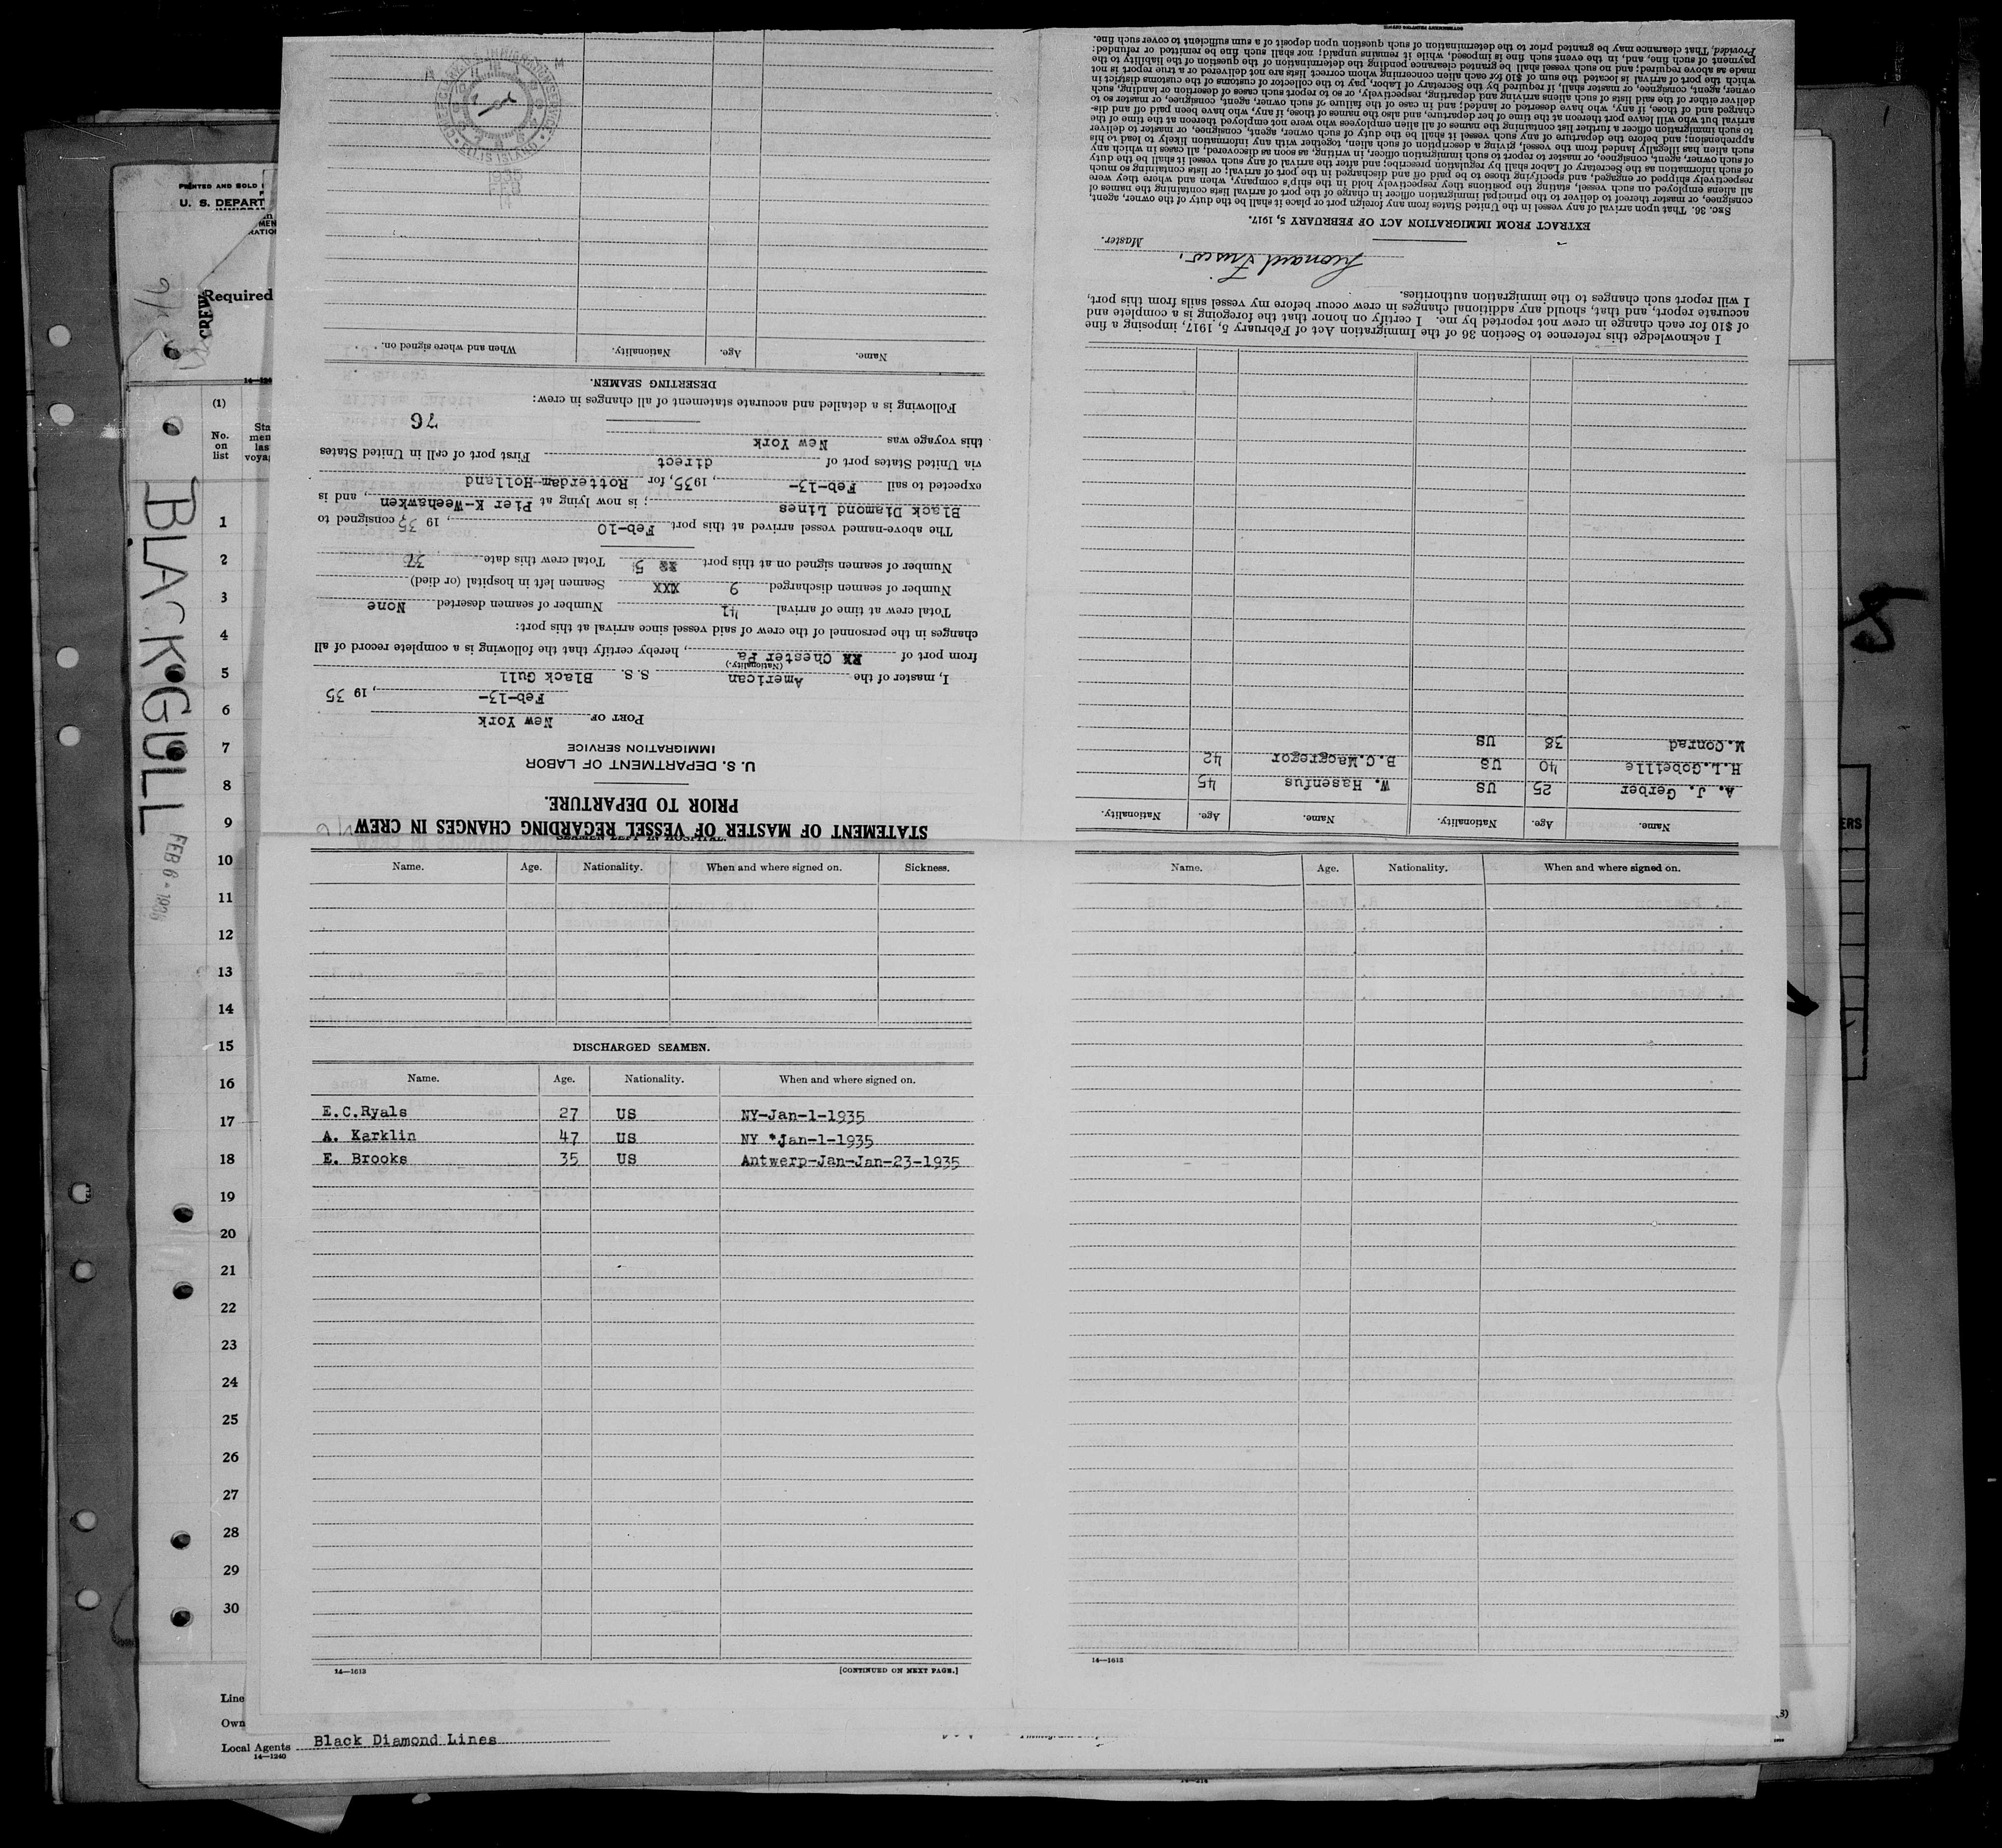 PRINTED AND SOLD
U. S. DEPART
CREW
Required
14—1240
(1)
No. on list
BLACK GULL
FEB 6 - 1935
1
2
3
4
5
6
7
8
9
10
11
12
13
14
15
16
17
18
19
20
21
22
23
24
25
26
27
28
29
30
Line
Own
Local Agents Black Diamond Lines
14—1240
STATEMENT OF MASTER OF VESSEL REGARDING CHANGES IN CREW
PRIOR TO DEPARTURE.
U. S. DEPARTMENT OF LABOR
IMMIGRATION SERVICE
PORT OF New York
Feb-13-, 19 35
I, master of the American S. S. Black Gull
(Nationality.)
from port of Chester Pa, hereby certify that the following is a complete record of all
changes in the personnel of the crew of said vessel since arrival at this port:
Total crew at time of arrival 41 Number of seamen deserted None
Number of seamen discharged 9 Seamen left in hospital (or died) XXX
Number of seamen signed on at this port 5 Total crew this date 37
The above-named vessel arrived at this port Feb-10, 19 35, consigned to
Black Diamond Lines; is now lying at Pier K-Weehawken, and is
expected to sail Feb-13-, 1935, for Rotterdam-Holland
via United States port of direct First port of call in United States
this voyage was New York
76
Following is a detailed and accurate statement of all changes in crew:
DESERTING SEAMEN.
Name. Age. Nationality. When and where signed on.
ELLIS ISLAND
1935
FEB
SEAMEN LEFT IN HOSPITAL.
Name. Age. Nationality. When and where signed on. Sickness.
DISCHARGED SEAMEN.
Name. Age. Nationality. When and where signed on.
E.C.Ryals 27 US NY-Jan-1-1935
A. Karklin 47 US NY *Jan-1-1935
E. Brooks 35 US Antwerp-Jan-Jan-23-1935
14—1613 [CONTINUED ON NEXT PAGE.]
Name. Age. Nationality. When and where signed on.
14—1613
Name. Age. Nationality. Name. Age. Nationality.
A. J. Gerber 25 US W. Hasenfus 45
H.L.Gobeille 40 US B.C.Macgregor 42
W.Conrad 38 US
I acknowledge this reference to Section 36 of the Immigration Act of February 5, 1917, imposing a fine
of $10 for each change in crew not reported by me. I certify on honor that the foregoing is a complete and
accurate report, and that, should any additional changes in crew occur before my vessel sails from this port,
I will report such changes to the immigration authorities.
Master.
EXTRACT FROM IMMIGRATION ACT OF FEBRUARY 5, 1917.
SEC. 36. That upon arrival of any vessel in the United States from any foreign port or place it shall be the duty of the owner, agent,
consignee, or master thereof to deliver to the principal immigration officer in charge of the port of arrival lists containing the names of
all aliens employed on such vessel, stating the positions they respectively hold in the ship's company, when and where they were
respectively shipped or engaged, and specifying those to be paid off and discharged in the port of arrival; or lists containing so much
of such information as the Secretary of Labor shall by regulation prescribe; and after the arrival of any such vessel it shall be the duty
of such owner, agent, consignee, or master to report to such immigration officer, in writing, as soon as discovered, all cases in which any
such alien has illegally landed from the vessel, giving a description of such alien, together with any information likely to lead to his
apprehension; and before the departure of any such vessel it shall be the duty of such owner, agent, consignee, or master to deliver
to such immigration officer a further list containing the names of all alien employees who were not employed thereon at the time of the
arrival but who will leave port thereon at the time of her departure, and also the names of those, if any, who have been paid off and dis-
charged and of those, if any, who have deserted or landed; and in case of the failure of such owner, agent, consignee, or master so to
deliver either of the said lists of such aliens arriving and departing, respectively, or so to report such cases of desertion or landing, such
owner, agent, consignee, or master shall, if required by the Secretary of Labor, pay to the collector of customs of the customs district in
which the port of arrival is located the sum of $10 for each alien concerning whom correct lists are not delivered or a true report is not
made as above required; and no such vessel shall be granted clearance pending the determination of the question of the liability to the
payment of such fine, and, in the event such fine is imposed, while it remains unpaid; nor shall such fine be remitted or refunded:
Provided, That clearance may be granted prior to the determination of such question upon deposit of a sum sufficient to cover such fine.